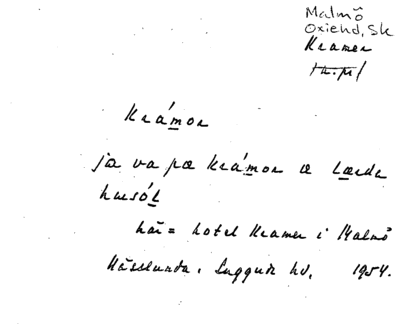 Malmö
Oxiehd, Sk
Kramer
tr.pl
Krámor
ja va pæ krámor æ lærda
husól
här = hotel Kramer i Malmö
Hässlunda, Luggude hd, 1954.